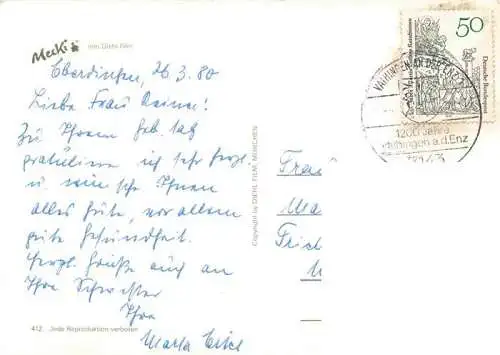 Mecki von Diehl Film
Eberdingen, 26.3.80
Liebe Frau
Zu Ihrem Geb. tag
gratuliere ich sehr herzl.
u. wünsche Ihnen
alles Gute, vor allem
gute Gesundheit.
Herzl. Grüße auch an
Ihre Schwester
Ihre
Marta
412 Jede Reproduktion verboten
Copyright by DIEHL FILM, MÜNCHEN
50
Deutsche Bundespost
VAIHINGEN AN DER ENZ
1200 Jahre
Vaihingen a.d.Enz
7143
Frau